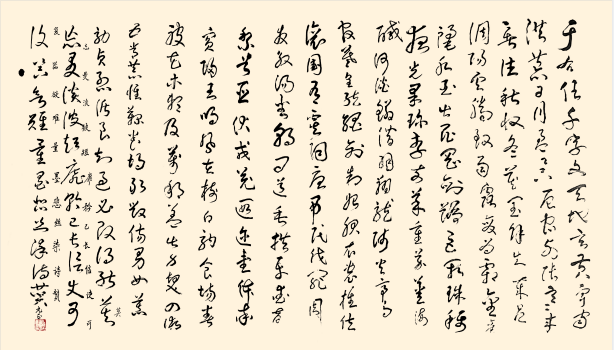 于右任千字文天地玄黃宇宙
洪荒日月盈昃辰宿列張寒來
暑往秋收冬藏閏餘成歲律呂
調陽雲騰致雨露結為霜金生
麗水玉出崑岡劍號巨闕珠稱
夜光果珍李柰菜重芥薑海
鹹河淡鱗潛羽翔龍師火帝鳥
官人皇始制文字乃服衣裳推位
讓國有虞陶唐弔民伐罪周
發殷湯坐朝問道垂拱平章
黎首臣伏戎羌遐邇壹體率
賓歸王鳴鳳在樹白駒食場
被草木賴及萬方蓋此身髮四
五常恭惟鞠養豈敢毀傷女慕
效才良知過必改得能莫
忘罔談彼短靡恃己長信使可
忘罔談彼短靡恃己長信使可
覆器欲難量墨悲絲染詩讚
覆器欲難量墨悲絲染詩讚